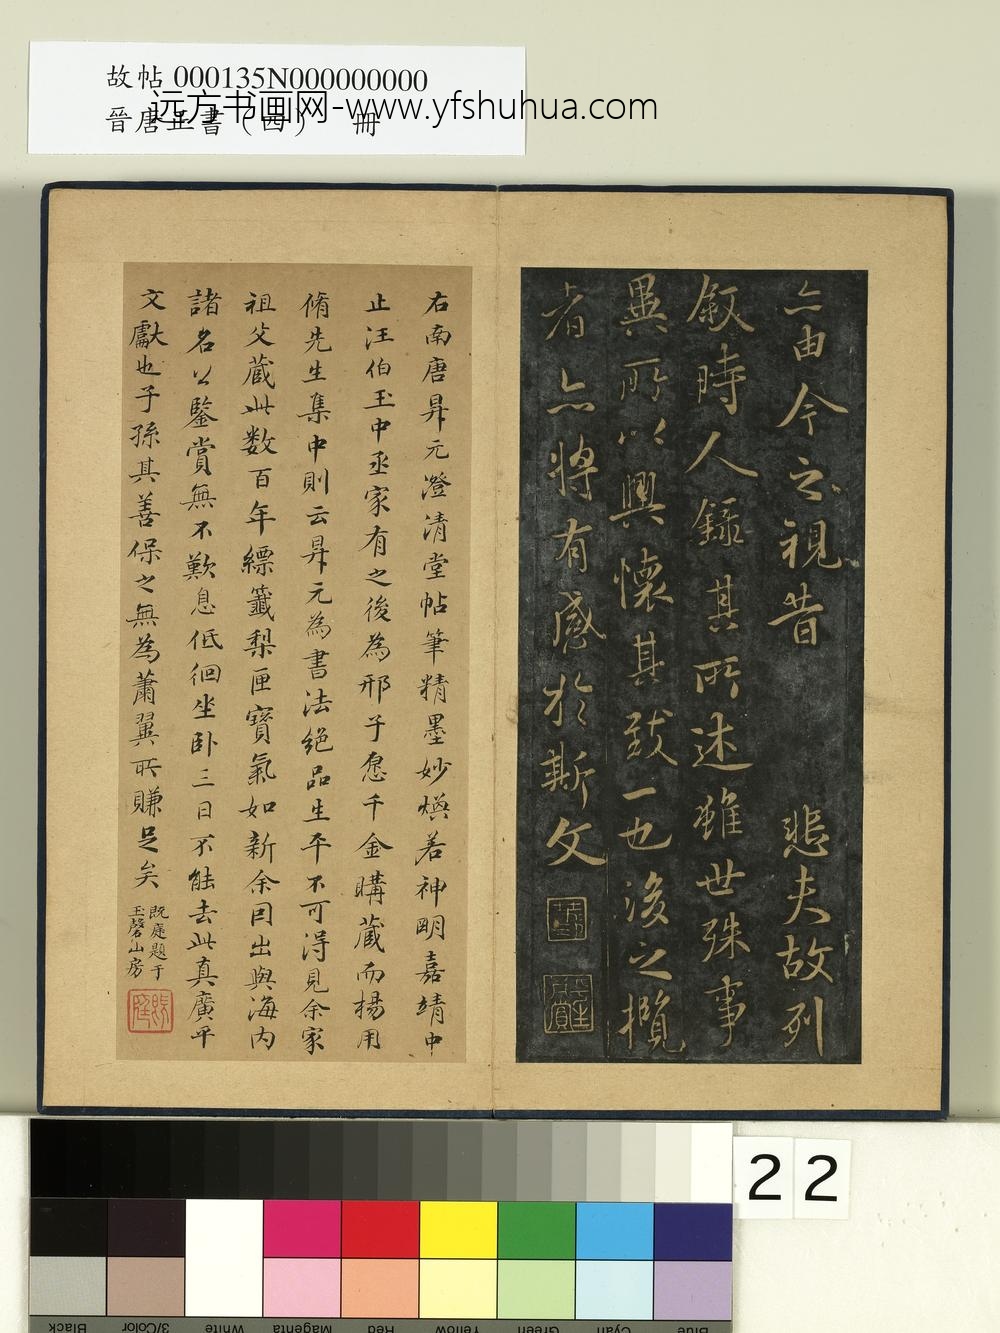 故帖 000135N000000000
晉唐正書（四） 冊
远方书画网-www.yfshuhua.com
亦由今之視昔 悲夫故列
敘時人錄其所述雖世殊事
異所以興懷其致一也後之攬
者亦將有感於斯文
右南唐昇元澄清堂帖筆精墨妙煥若神明嘉靖中
止汪伯玉中丞家有之後為邢子愿千金購藏而楊用
脩先生集中則云昇元為書法絕品生平不可得見余家
祖父藏此数百年縹籤梨匣寶氣如新余因出與海內
諸名公鑒賞無不歎息低徊坐卧三日不能去此真廣平
文獻也子孫其善保之無為蕭翼所賺足矣
既庭題于
玉磬山房
22
Black
3/Color
White
Magenta
Red
Yellow
Green
Cyan
Blue